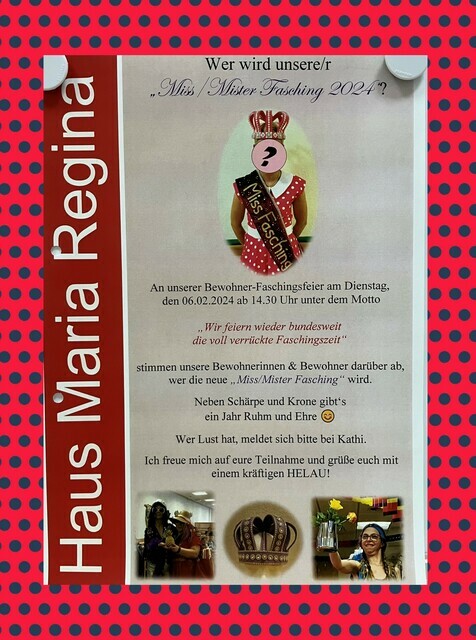 Haus Maria Regina
Wer wird unsere/r
„Miss/Mister Fasching 2024“?
?
Miss Fasching
An unserer Bewohner-Faschingsfeier am Dienstag,
den 06.02.2024 ab 14.30 Uhr unter dem Motto
„Wir feiern wieder bundesweit
die voll verrückte Faschingszeit“
stimmen unsere Bewohnerinnen & Bewohner darüber ab,
wer die neue „Miss/Mister Fasching“ wird.
Neben Schärpe und Krone gibt‘s
ein Jahr Ruhm und Ehre 😊
Wer Lust hat, meldet sich bitte bei Kathi.
Ich freue mich auf eure Teilnahme und grüße euch mit
einem kräftigen HELAU!